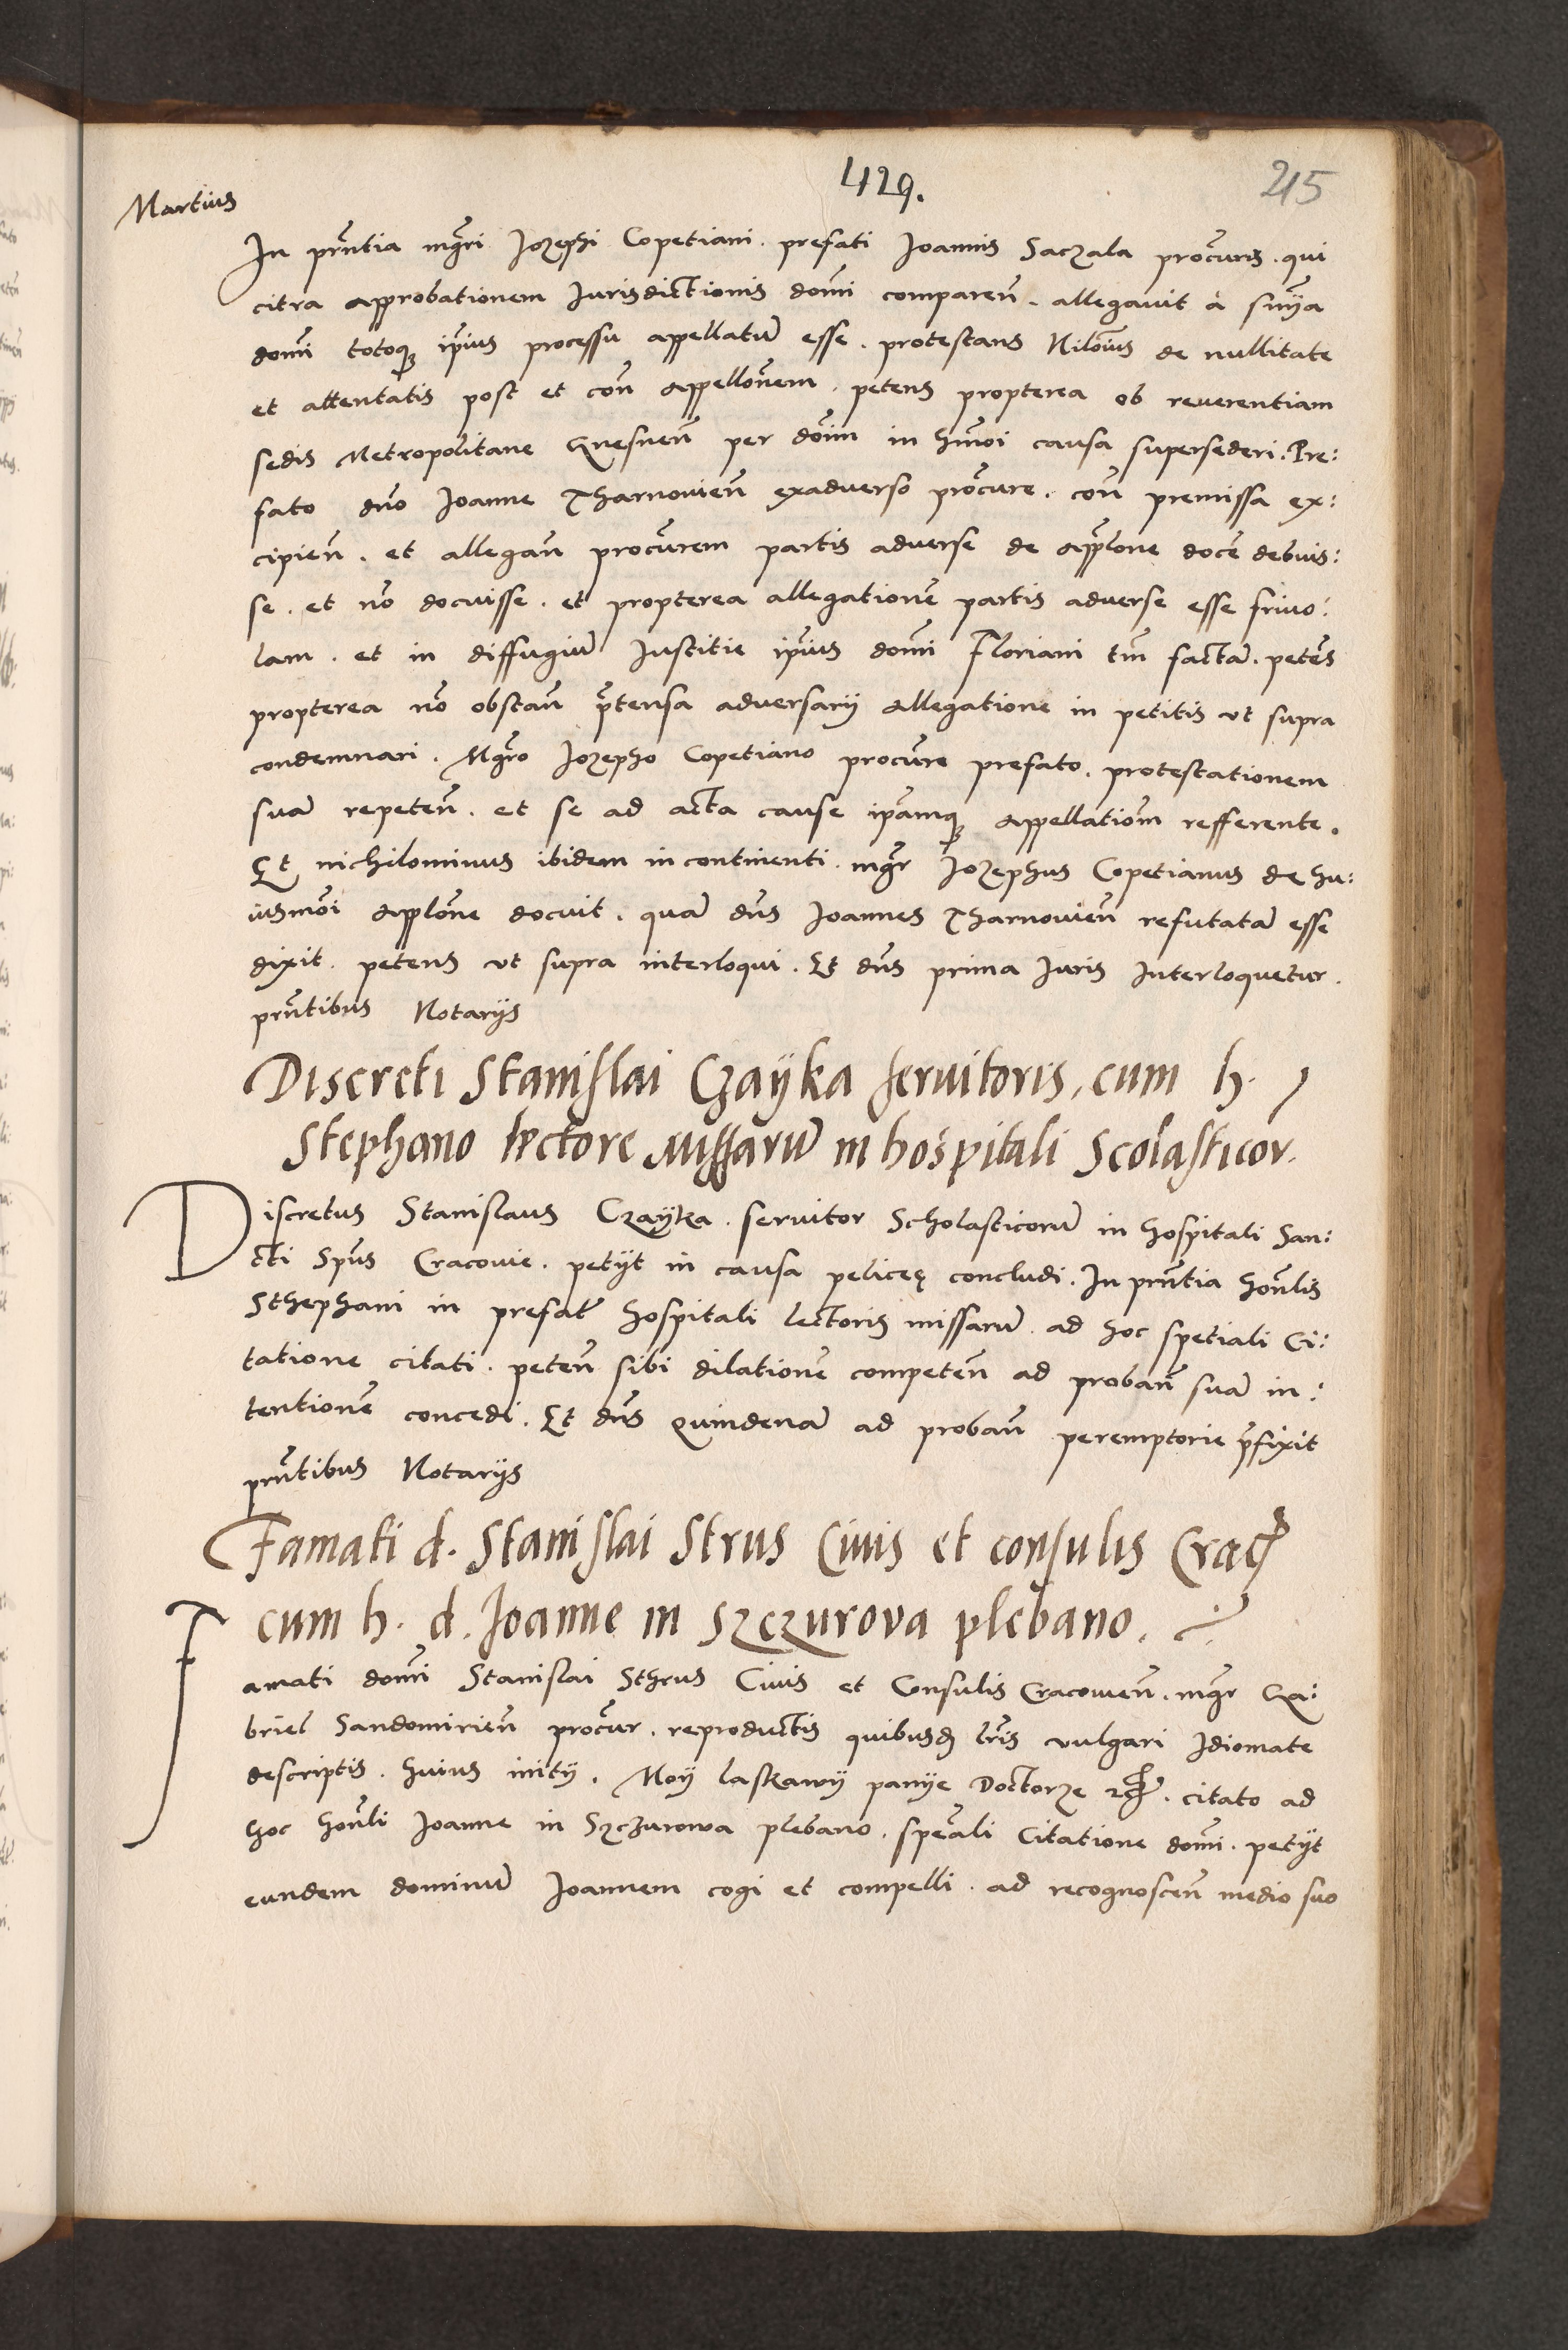 429.
215
Martius
In prñtia mgri Jozephi Copetiani. prefati Joannis Saczala procuris. qui
citra approbationem Jurisdictionis domi comparen̄. allegavit à snīa
domi totoq ipīus processu appellatū esse. protestans Nilomīus de nullitate
et attentatis post et con̄ appellon̄em. petens propterea ob reverentiam
sedis Metropolitane Gnesnen̄ per doīm in hmoī causa supersederi. Pre:
fato dno Joanne Tharnovien̄ exadverso procure. con̄ premissa ex:
cipien̄. et allegan̄ procurem partis adverse de applōne docē debuis:
se. et nō docuisse. et propterea allegationē partis adverse esse frivo:
lam. et in diffugiū Justitie ipīus domi Floriani tm̄ factā. petēs
propterea nō obstan̄ p̄tensa adversarij allegatione in petitis ut supra
condemnari. Mgro Jozepho Copetiano procure prefato. protestationem
suā repeten̄. et se ad acta cause ipāmq appellatiōm refferente.
Et nichilominus ibidem incontinenti. mgr Jozephus Copetianus de hu:
iusmoi applōne docuit. quā dns Joannes Tharnovien̄ refutatā esse
dixit. petens ut supra interloqui. Et dns prima Juris Interloquetur.
prn̄tibus Notarijs
Discreti Stanislai Czayka servitoris, cum h.
Stephano lectore missarū in hospitali Scolasticor.
Discretus Stanislaus Czayka. servitor Scholasticorū in hospitali San:
cti Spus Cracovie. petijt in causa peliceę concludi. In prn̄tia honlis
Sthephani in prefat̄ hospitali lectoris missarū. ad hoc spetiali Ci:
tatione citati. peten̄ sibi dilationē competen̄ ad proban̄ suā in:
tentionē concedi. Et dns quindenā ad proban̄ peremptorie p̄fixit
prn̄tibus Notarijs
Famati d. Stanislai Strus Civis et consulis Crac
cum h. d. Joanne in Szczurova plebano.
Famati domi Stanislai Sthrus Civis et Consulis Cracovien̄. mgr Ga:
briel Sandomirien̄ procur. reproductis quibusd lris vulgari Idiomate
descriptis. huius initij. Moy laskawy panye Doctorze etc. citato ad
hoc honli Joanne in Szczurowa plebano. speāli Citatione domi. petijt
eundem dominū Joannem cogi et compelli. ad recognoscen̄ medio suo